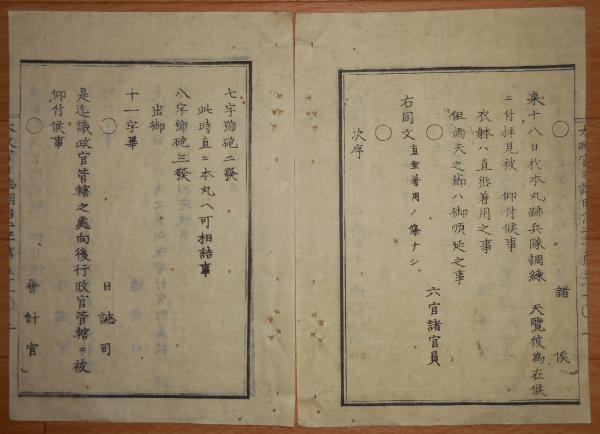 ○ 諸侯
來十八日於本丸跡兵隊調練 天覽被為在候
ニ付拝見被 仰付候事
衣躰ハ直垂着用之事
但雨天之節ハ御順延之事
○ 六官諸官員
右同文 直垂着用ノ條ナシ
○
次序
七字號砲二發
此時直ニ本丸へ可相詰事
八字號砲三發
出御
十一字畢
○ 日誌司
是迄議政官管轄之處向後行政官管轄ニ被
仰付候事
○ 會計官